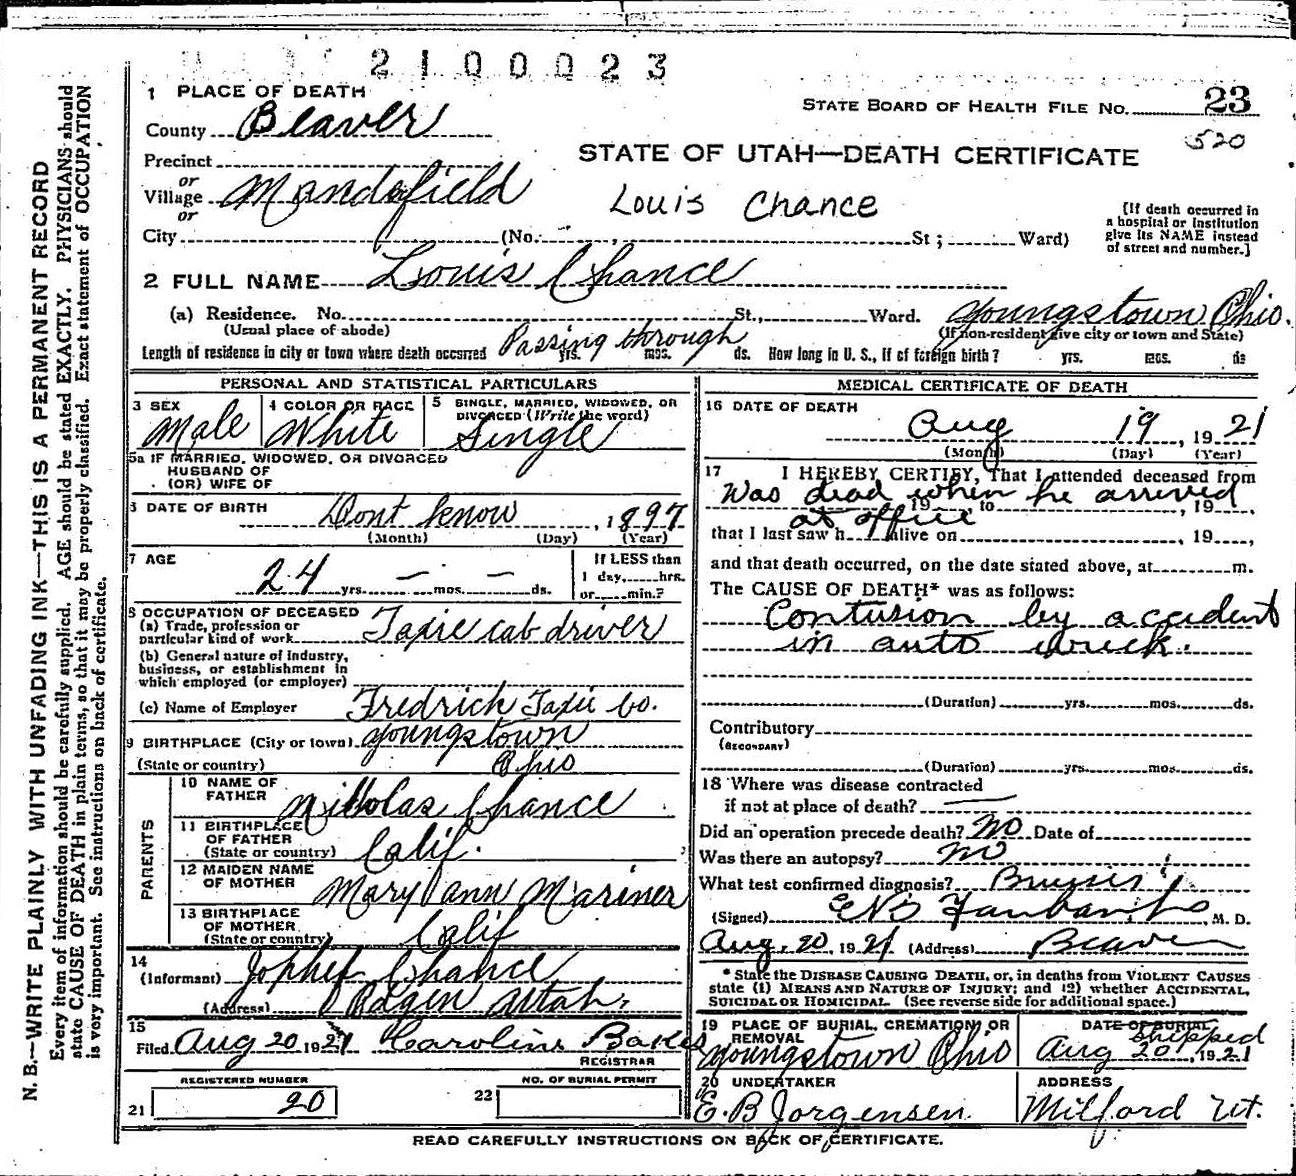 2100023
1 PLACE OF DEATH
STATE BOARD OF HEALTH FILE NO. 23
County Beaver
520
Precinct
STATE OF UTAH—DEATH CERTIFICATE
or
Village Mandsfield
Louis Chance
or
[If death occurred in a hospital or institution give its NAME instead of street and number.]
City (No. , St; Ward)
2 FULL NAME Louis Chance
(a) Residence. No. St., Ward. Youngstown Ohio.
(Usual place of abode) (If non-resident give city or town and State)
Length of residence in city or town where death occurred Passing through yrs. mos. ds. How long in U. S., if of foreign birth? yrs. mos. ds
PERSONAL AND STATISTICAL PARTICULARS
3 SEX Male
4 COLOR OR RACE White
5 SINGLE, MARRIED, WIDOWED, OR DIVORCED (Write the word) Single
5a IF MARRIED, WIDOWED, OR DIVORCED
HUSBAND OF
(OR) WIFE OF
6 DATE OF BIRTH Dont know , 1897
(Month) (Day) (Year)
7 AGE 24 yrs. — mos. — ds.
If LESS than
1 day, hrs.
or min.?
8 OCCUPATION OF DECEASED
(a) Trade, profession or
particular kind of work Taxie cab driver
(b) General nature of industry,
business, or establishment in
which employed (or employer)
(c) Name of Employer Fredrick Taxie Co.
9 BIRTHPLACE (City or town) Youngstown
(State or country) Ohio
PARENTS
10 NAME OF
FATHER Nitholas Chance
11 BIRTHPLACE
OF FATHER
(State or country) Calif.
12 MAIDEN NAME
OF MOTHER Mary ann Mariner
13 BIRTHPLACE
OF MOTHER
(State or country) Calif
14
(Informant) Chance
(Address) Utah,
15
Filed Aug 20 1921 Caroline
REGISTRAR
REGISTERED NUMBER
21 20
NO. OF BURIAL PERMIT
22
MEDICAL CERTIFICATE OF DEATH
16 DATE OF DEATH
Aug 19, 1921
(Month) (Day) (Year)
17 I HEREBY CERTIFY, That I attended deceased from
Was dead when he arrived
19 , to , 19 ,
at office
that I last saw h alive on , 19 ,
and that death occurred, on the date stated above, at m.
The CAUSE OF DEATH* was as follows:
Contusion by accident
in auto wreck.
(Duration) yrs. mos. ds.
Contributory
(SECONDARY)
(Duration) yrs. mos. ds.
18 Where was disease contracted
if not at place of death? —
Did an operation precede death? No Date of
Was there an autopsy? no
What test confirmed diagnosis?
(Signed) Fairbanks, M. D.
Aug. 20, 1921 (Address) Beaver
* State the DISEASE CAUSING DEATH, or, in deaths from VIOLENT CAUSES
state (1) MEANS AND NATURE OF INJURY; and (2) whether ACCIDENTAL,
SUICIDAL OR HOMICIDAL. (See reverse side for additional space.)
19 PLACE OF BURIAL, CREMATION, OR
REMOVAL
Youngstown Ohio
DATE OF BURIAL
Shipped
Aug 20, 1921
20 UNDERTAKER
E. B Jorgensen
ADDRESS
Milford Ut.
READ CAREFULLY INSTRUCTIONS ON BACK OF CERTIFICATE.
N. B.—WRITE PLAINLY WITH UNFADING INK—THIS IS A PERMANENT RECORD
Every item of information should be carefully supplied. AGE should be stated EXACTLY. PHYSICIANS should
state CAUSE OF DEATH in plain terms, so that it may be properly classified. Exact statement of OCCUPATION
is very important. See instructions on back of certificate.